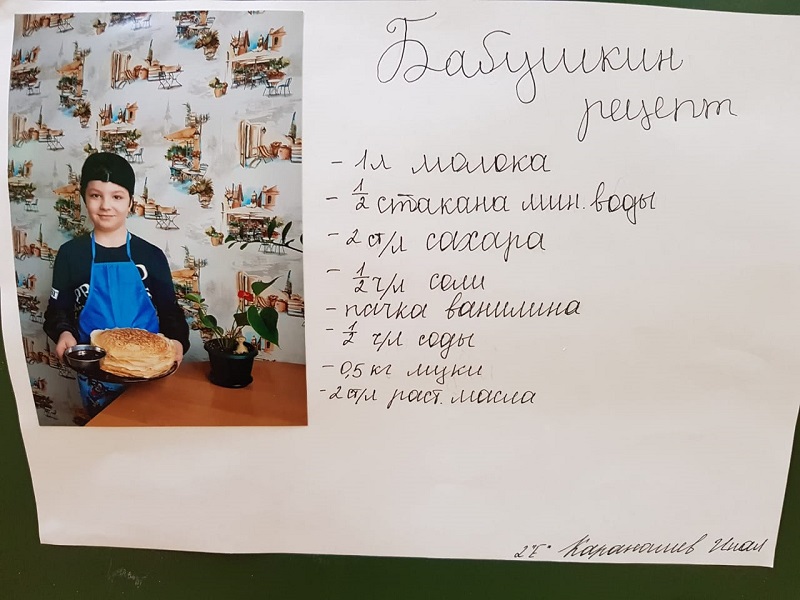 Бабушкин
рецепт
- 1 л молока
- 1/2 стакана мин. воды
- 2 ст/л сахара
- 1/2 ч/л соли
- пачка ванилина
- 1/2 ч/л соды
- 0,5 кг муки
- 2 ст/л раст. масла